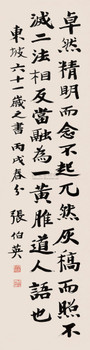 卓然精明而念不起兀然灰槁而照不
滅二法相反當融為一黃道人語也
東坡六十一歲之書 丙戌春分 張伯英